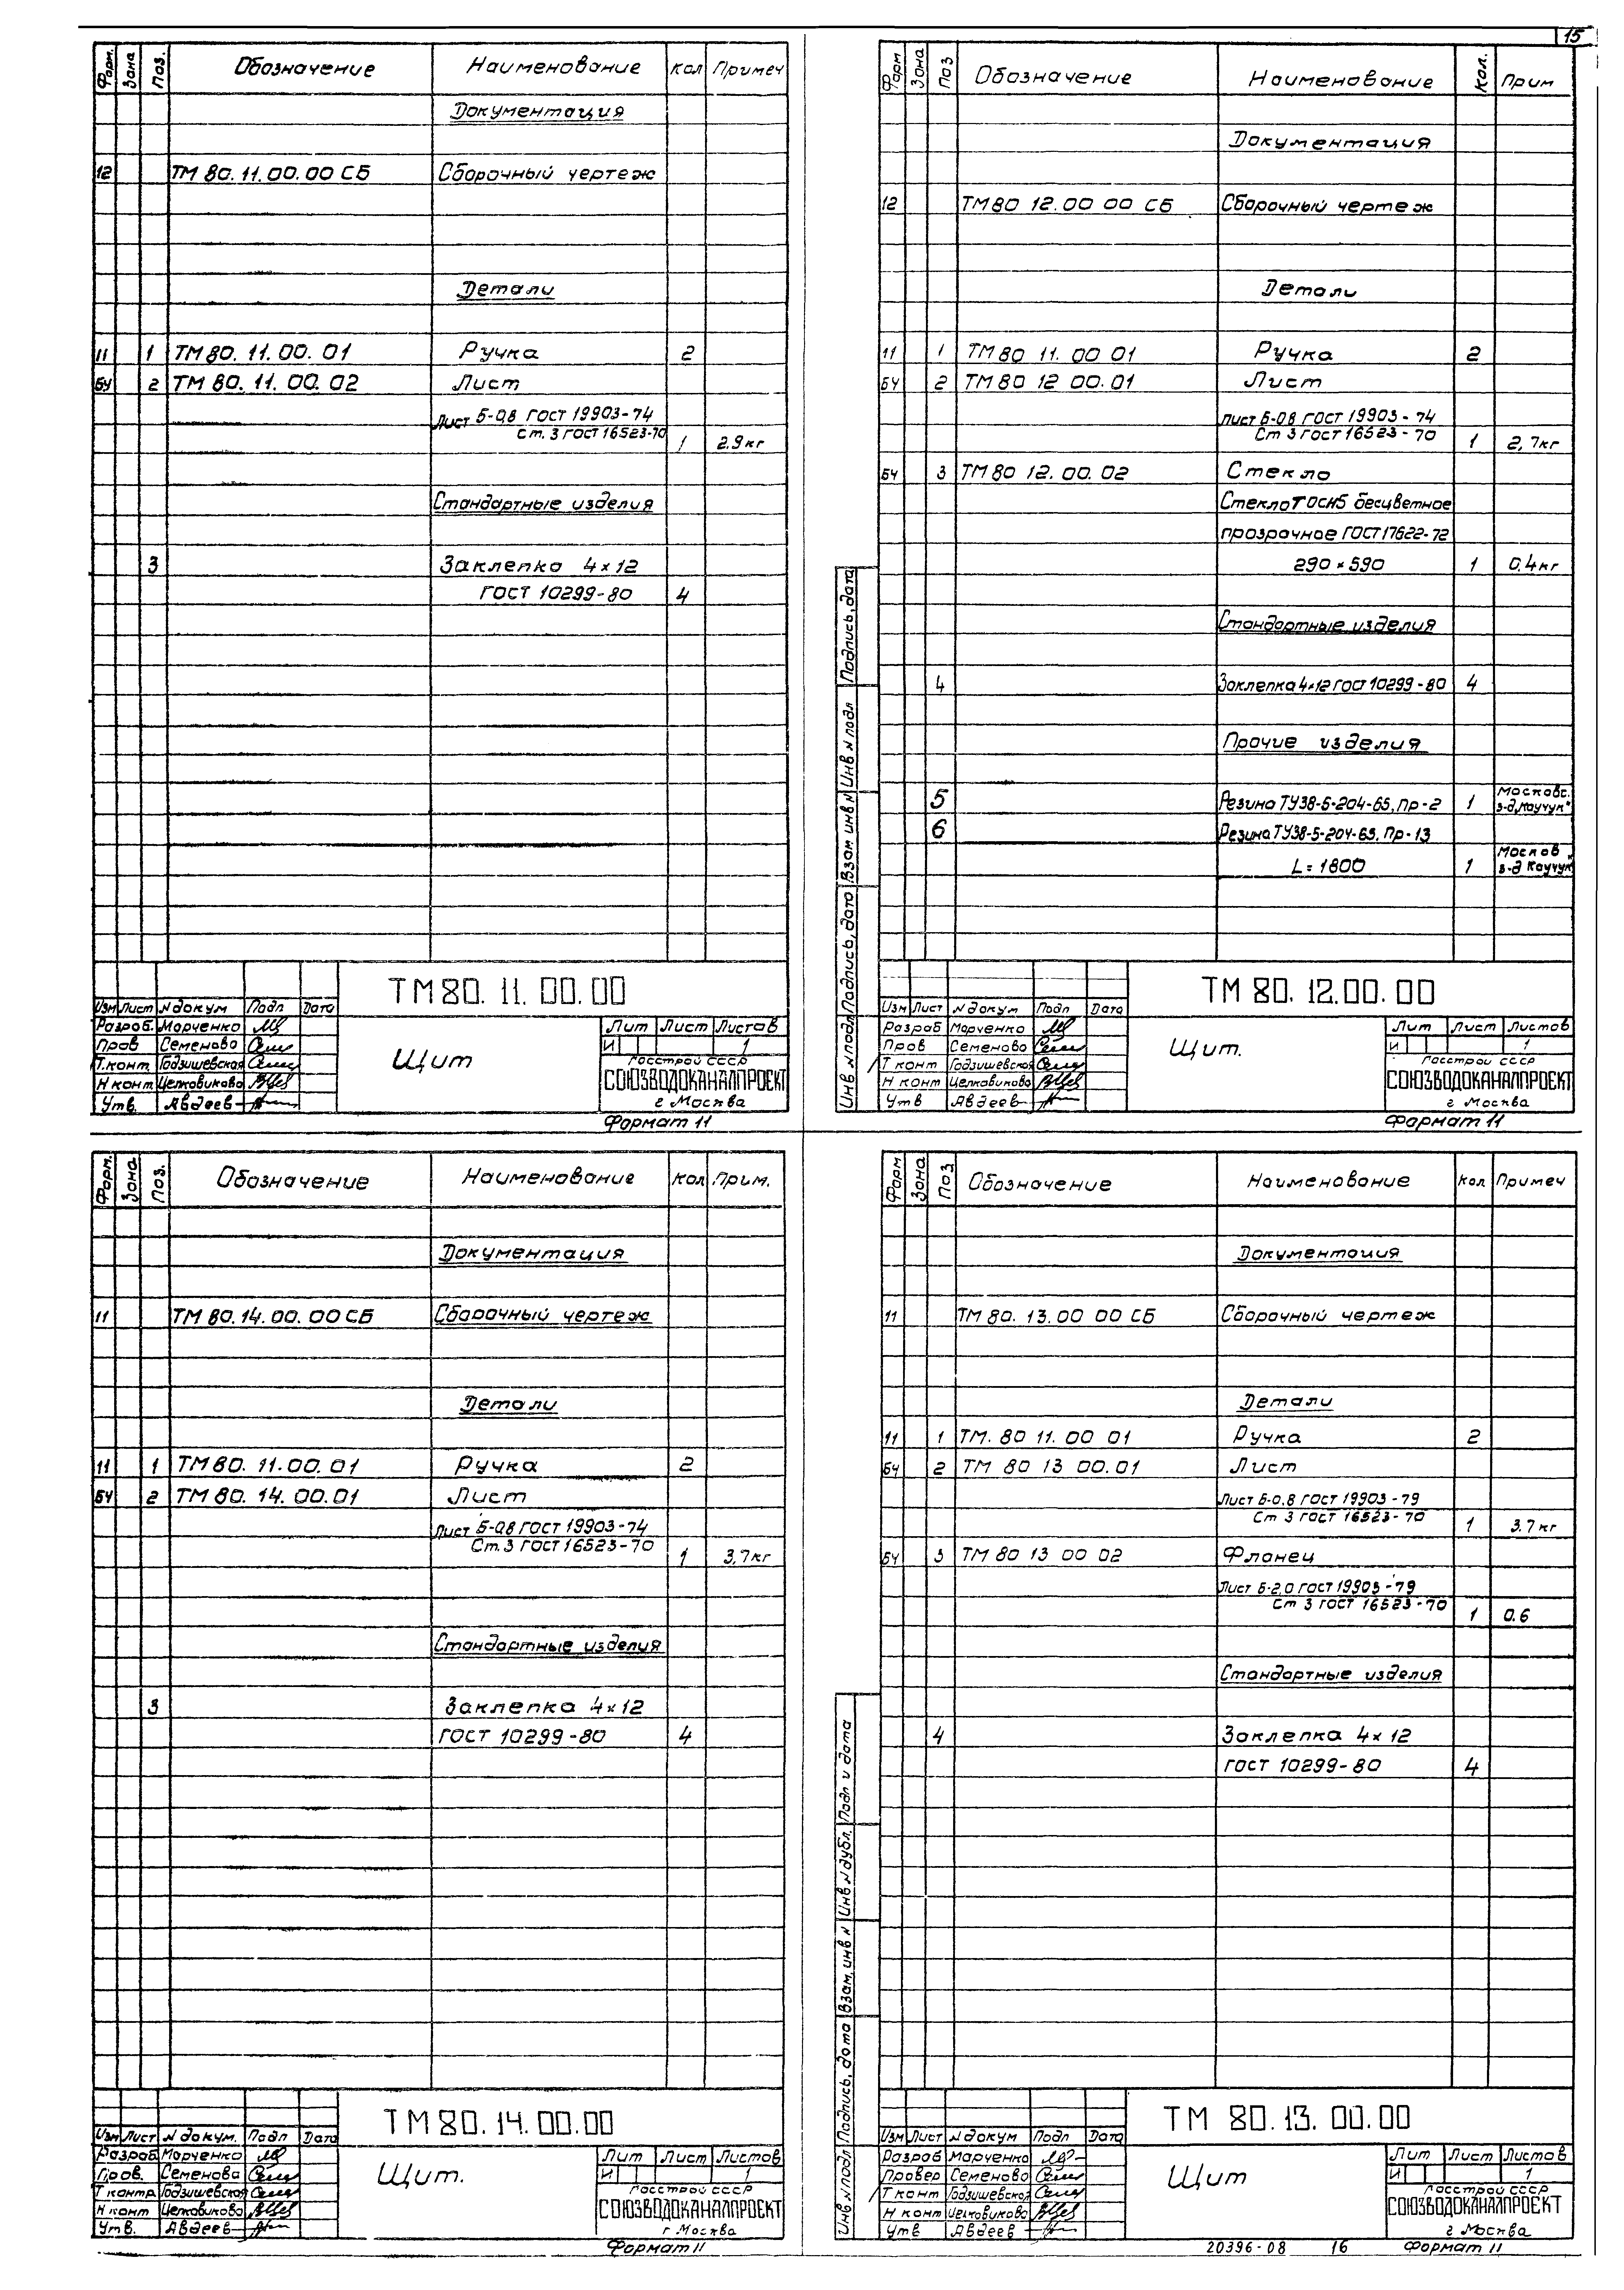 15
Форм. Зона Поз. Обозначение Наименование Кол Примеч
Документация
12 ТМ 80.11.00.00 СБ Сборочный чертеж
Детали
11 1 ТМ 80.11.00.01 Ручка 2
БЧ 2 ТМ 80.11.00.02 Лист
Лист Б-0,8 ГОСТ 19903-74
Ст. 3 ГОСТ 16523-70 1 2.9кг
Стандартные изделия
3 Заклепка 4×12
ГОСТ 10299-80 4
ТМ 80.11.00.00
Изм Лист N докум Подп Дата
Разроб. Марченко
Пров Семенова
Т.конт. Годзишевская
Н конт Целковикова
Утв. Авдеев
Щит
Лит Лист Листов
И 1
Госстрой СССР
СОЮЗВОДОКАНАЛПРОЕКТ
г Москва
Формат 11
Форм Зона Поз Обозначение Наименование Кол. Прим
Документация
12 ТМ 80 12.00 00 СБ Сборочный чертеж
Детали
11 1 ТМ 80 11.00 01 Ручка 2
БЧ 2 ТМ 80 12 00.01 Лист
Лист Б-0,8 ГОСТ 19903-74
Ст 3 ГОСТ 16523-70 1 2,7кг
БЧ 3 ТМ 80 12.00.02 Стекло
Стекло бесцветное
прозрачное ГОСТ 17622-72
290×590 1 0,4кг
Стандартные изделия
4 Заклепка 4×12 ГОСТ 10299-80 4
Прочие изделия
5 Резина ТУ38-5-204-65, Пр-2 1 Московс. з-д "Каучук"
6 Резина ТУ38-5-204-65, Пр-13
L=1800 1 Москов з-д Каучук
Подпись, дата
Инв N подл
Взам инв N
Подпись, дата
Инв N подл
ТМ 80.12.00.00
Изм Лист N докум Подп Дата
Разроб Марченко
Пров Семенова
Т конт Годзишевская
Н конт Целковикова
Утв Авдеев
Щит.
Лит Лист Листов
И 1
Госстрой СССР
СОЮЗВОДОКАНАЛПРОЕКТ
г Москва
Формат 11
Форм. Зона Поз. Обозначение Наименование Кол Прим.
Документация
11 ТМ 80.14.00.00 СБ Сборочный чертеж
Детали
11 1 ТМ 80.11.00.01 Ручка 2
БЧ 2 ТМ 80.14.00.01 Лист
Лист Б-0,8 ГОСТ 19903-74
Ст. 3 ГОСТ 16523-70 1 3,7кг
Стандартные изделия
3 Заклепка 4×12
ГОСТ 10299-80 4
ТМ 80.14.00.00
Изм Лист N докум. Подп Дата
Разроб Марченко
Пров. Семенова
Т контр Годзишевская
Н конт Целковикова
Утв. Авдеев
Щит.
Лит Лист Листов
И 1
Госстрой СССР
СОЮЗВОДОКАНАЛПРОЕКТ
г Москва
Формат 11
Форм Зона Поз Обозначение Наименование Кол Примеч
Документация
11 ТМ 80.13.00 00 СБ Сборочный чертеж
Детали
11 1 ТМ. 80 11.00 01 Ручка 2
БЧ 2 ТМ 80 13 00.01 Лист
Лист Б-0,8 ГОСТ 19903-79
Ст 3 ГОСТ 16523-70 1 3.7кг
БЧ 3 ТМ 80 13 00 02 Фланец
Лист Б-2,0 ГОСТ 19903-79
Ст 3 ГОСТ 16523-70 1 0.6
Стандартные изделия
4 Заклепка 4×12
ГОСТ 10299-80 4
Подп и дата
Инв N дубл.
Взам, инв N
Подпись, дата
Инв N подл
ТМ 80.13.00.00
Изм Лист N докум Подп Дата
Разроб Марченко
Провер Семенова
Т конт Годзишевская
Н конт Целковикова
Утв Авдеев
Щит
Лит Лист Листов
И 1
Госстрой СССР
СОЮЗВОДОКАНАЛПРОЕКТ
г Москва
20396-08 16 Формат 11